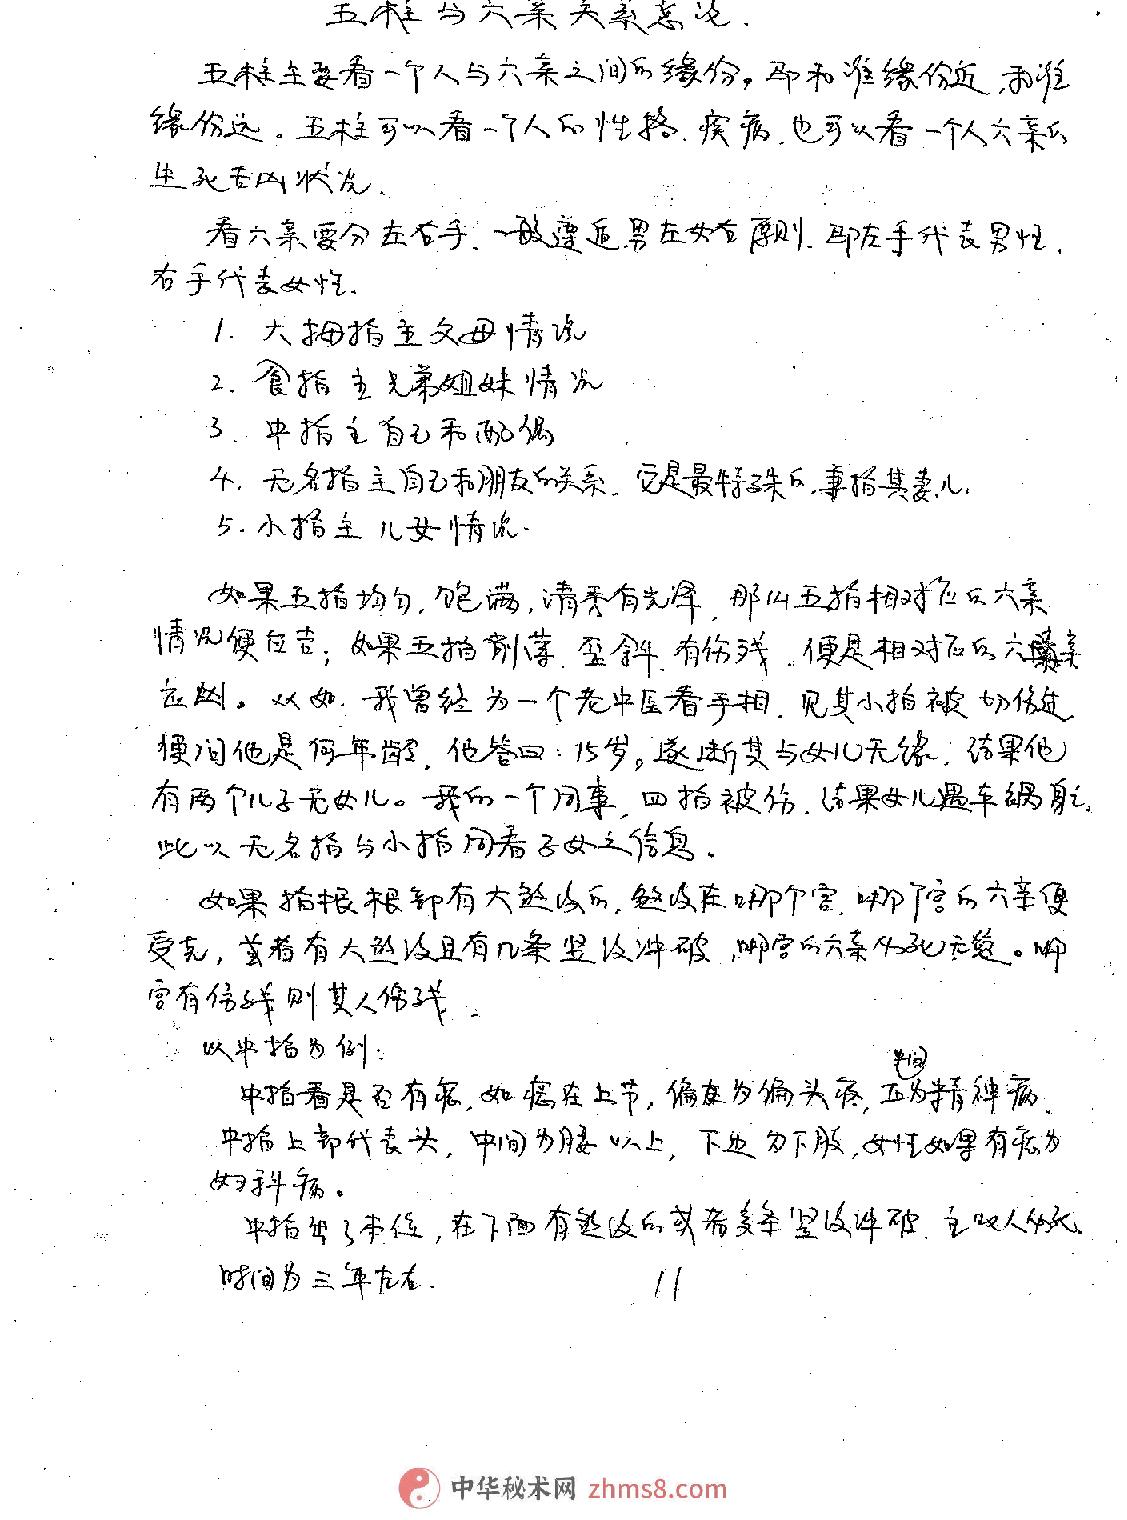 五柱与六亲关系总说.
五柱主要看一个人与六亲之间的缘份。即和谁缘份近,和谁
缘份远。五柱可以看一个人的性格、疾病、也可以看一个人六亲的
生死吉凶状况.
看六亲要分左右手、一般遵近男左女右原则、即左手代表男性.
右手代表女性.
1. 大拇指主父母情况
2. 食指主兄弟姐妹情况
3. 中指主自己和配偶
4. 无名指主自己和朋友的关系、它是最特殊的、专指其妻儿.
5. 小指主儿女情况.
如果五指均匀,饱满,清秀有光泽,那么五指相对应的六亲
情况便应吉;如果五指削薄、歪斜、有伤残、便是相对应的六亲
应凶。比如、我曾经为一个老中医看手相、见其小指被切伤过
便问他是何年龄、他答曰:15岁。遂断其与女儿无缘、结果他
有两个儿子无女儿。我的一个同事,四指被伤、结果女儿遇车祸身亡.
此以无名指与小指同看子女之信息.
如果指根根部有大煞纹的,煞纹在哪个宫、哪个宫的六亲便
受克,若有大煞纹且有几条竖纹冲破,哪宫的六亲必死无疑。哪
宫有伤残则其人伤残.
以中指为例:
中指看是否有痣,如痣在上节,偏左为偏头疼,正中间为精神病.
中指上部代表头,中间为腰以上,下边为下肢,女性如果有痣为
妇科病。
中指出了本位,在下面有煞纹的或者多条竖纹冲破、主人必死.
时间为三年左右.
11
中华秘术网 zhms8.com